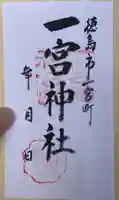 徳島市一宮町
一宮神社
年月日